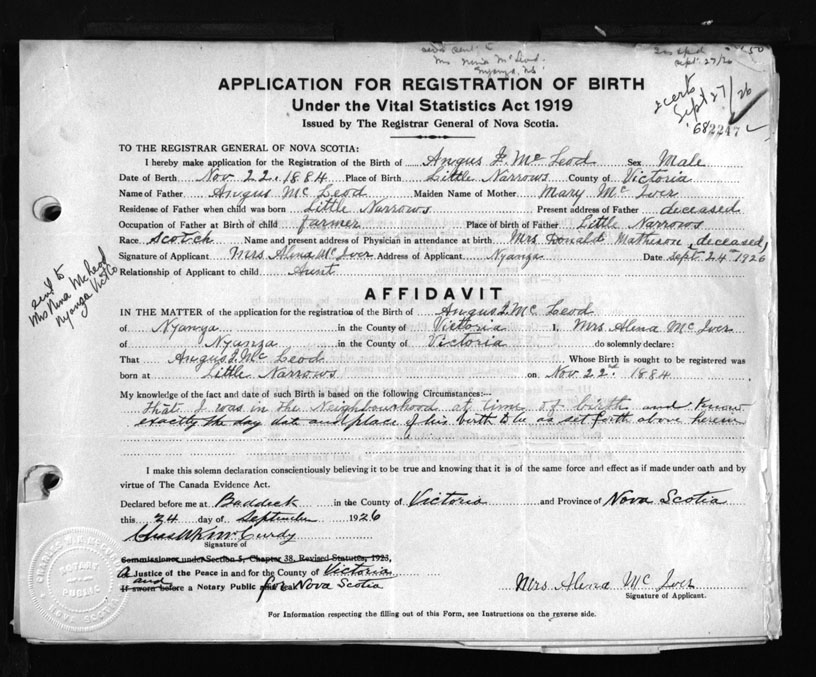 Mrs Nina McLeod
Nyanza, NS
Sept 27/26
2 certs
Sept 27/26
682247
APPLICATION FOR REGISTRATION OF BIRTH
Under the Vital Statistics Act 1919
Issued by The Registrar General of Nova Scotia.
TO THE REGISTRAR GENERAL OF NOVA SCOTIA:
I hereby make application for the Registration of the Birth of Angus J. Mc Leod Sex Male
Date of Birth Nov 22. 1884 Place of Birth Little Narrows County of Victoria
Name of Father Angus Mc Leod Maiden Name of Mother Mary Mc Iver
Residense of Father when child was born Little Narrows Present address of Father deceased
Occupation of Father at Birth of child farmer Place of birth of Father Little Narrows
Race Scotch Name and present address of Physician in attendance at birth Mrs Donald Matheson, deceased,
Signature of Applicant Mrs Alena Mc Iver Address of Applicant Nyanza Date Sept 24th 1926
Relationship of Applicant to child Aunt
sent to
Mrs Nina McLeod
Nyanza Vict Co
AFFIDAVIT
IN THE MATTER of the application for the registration of the Birth of Angus J. Mc Leod
of Nyanza in the County of Victoria I, Mrs Alena Mc Iver
of Nyanza in the County of Victoria do solemnly declare:
That Angus J. Mc Leod Whose Birth is sought to be registered was
born at Little Narrows on Nov 22nd 1884
My knowledge of the fact and date of such Birth is based on the following Circumstances:--
that I was in the Neighbourhood at time of birth and know
exactly the day date and place of his birth to be as set forth above herein
I make this solemn declaration conscientiously believing it to be true and knowing that it is of the same force and effect as if made under oath and by
virtue of The Canada Evidence Act.
Declared before me at Baddeck in the County of Victoria and Province of Nova Scotia
this 24 day of September 1926
Chas W K McCurdy
Signature of
Commissioner under Section 5, Chapter 38, Revised Statutes, 1923,
A Justice of the Peace in and for the County of Victoria
and
If sworn before a Notary Public for Nova Scotia
Mrs Alena Mc Iver
Signature of Applicant.
NOTARY
PUBLIC
NOVA SCOTIA
For Information respecting the filling out of this Form, see Instructions on the reverse side.